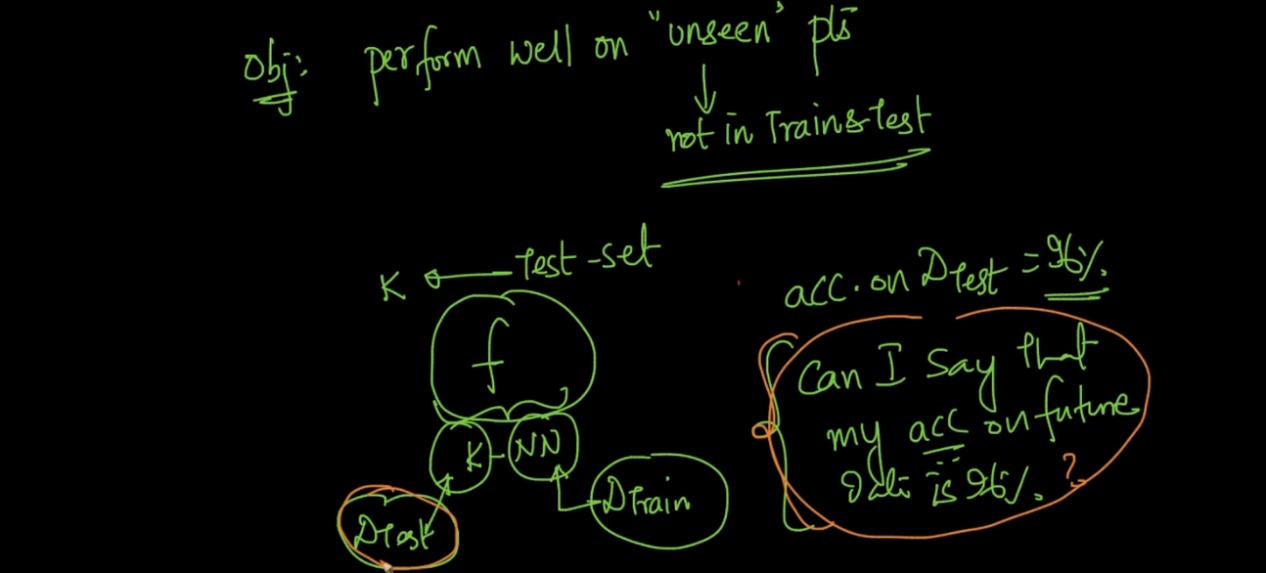 Obj: perform well on "unseen" pts
not in Train & test
K ← Test-set
f
K-NN
DTrain
DTest
acc. on DTest = 96%.
Can I say that
my acc on future
data is 96%. ?